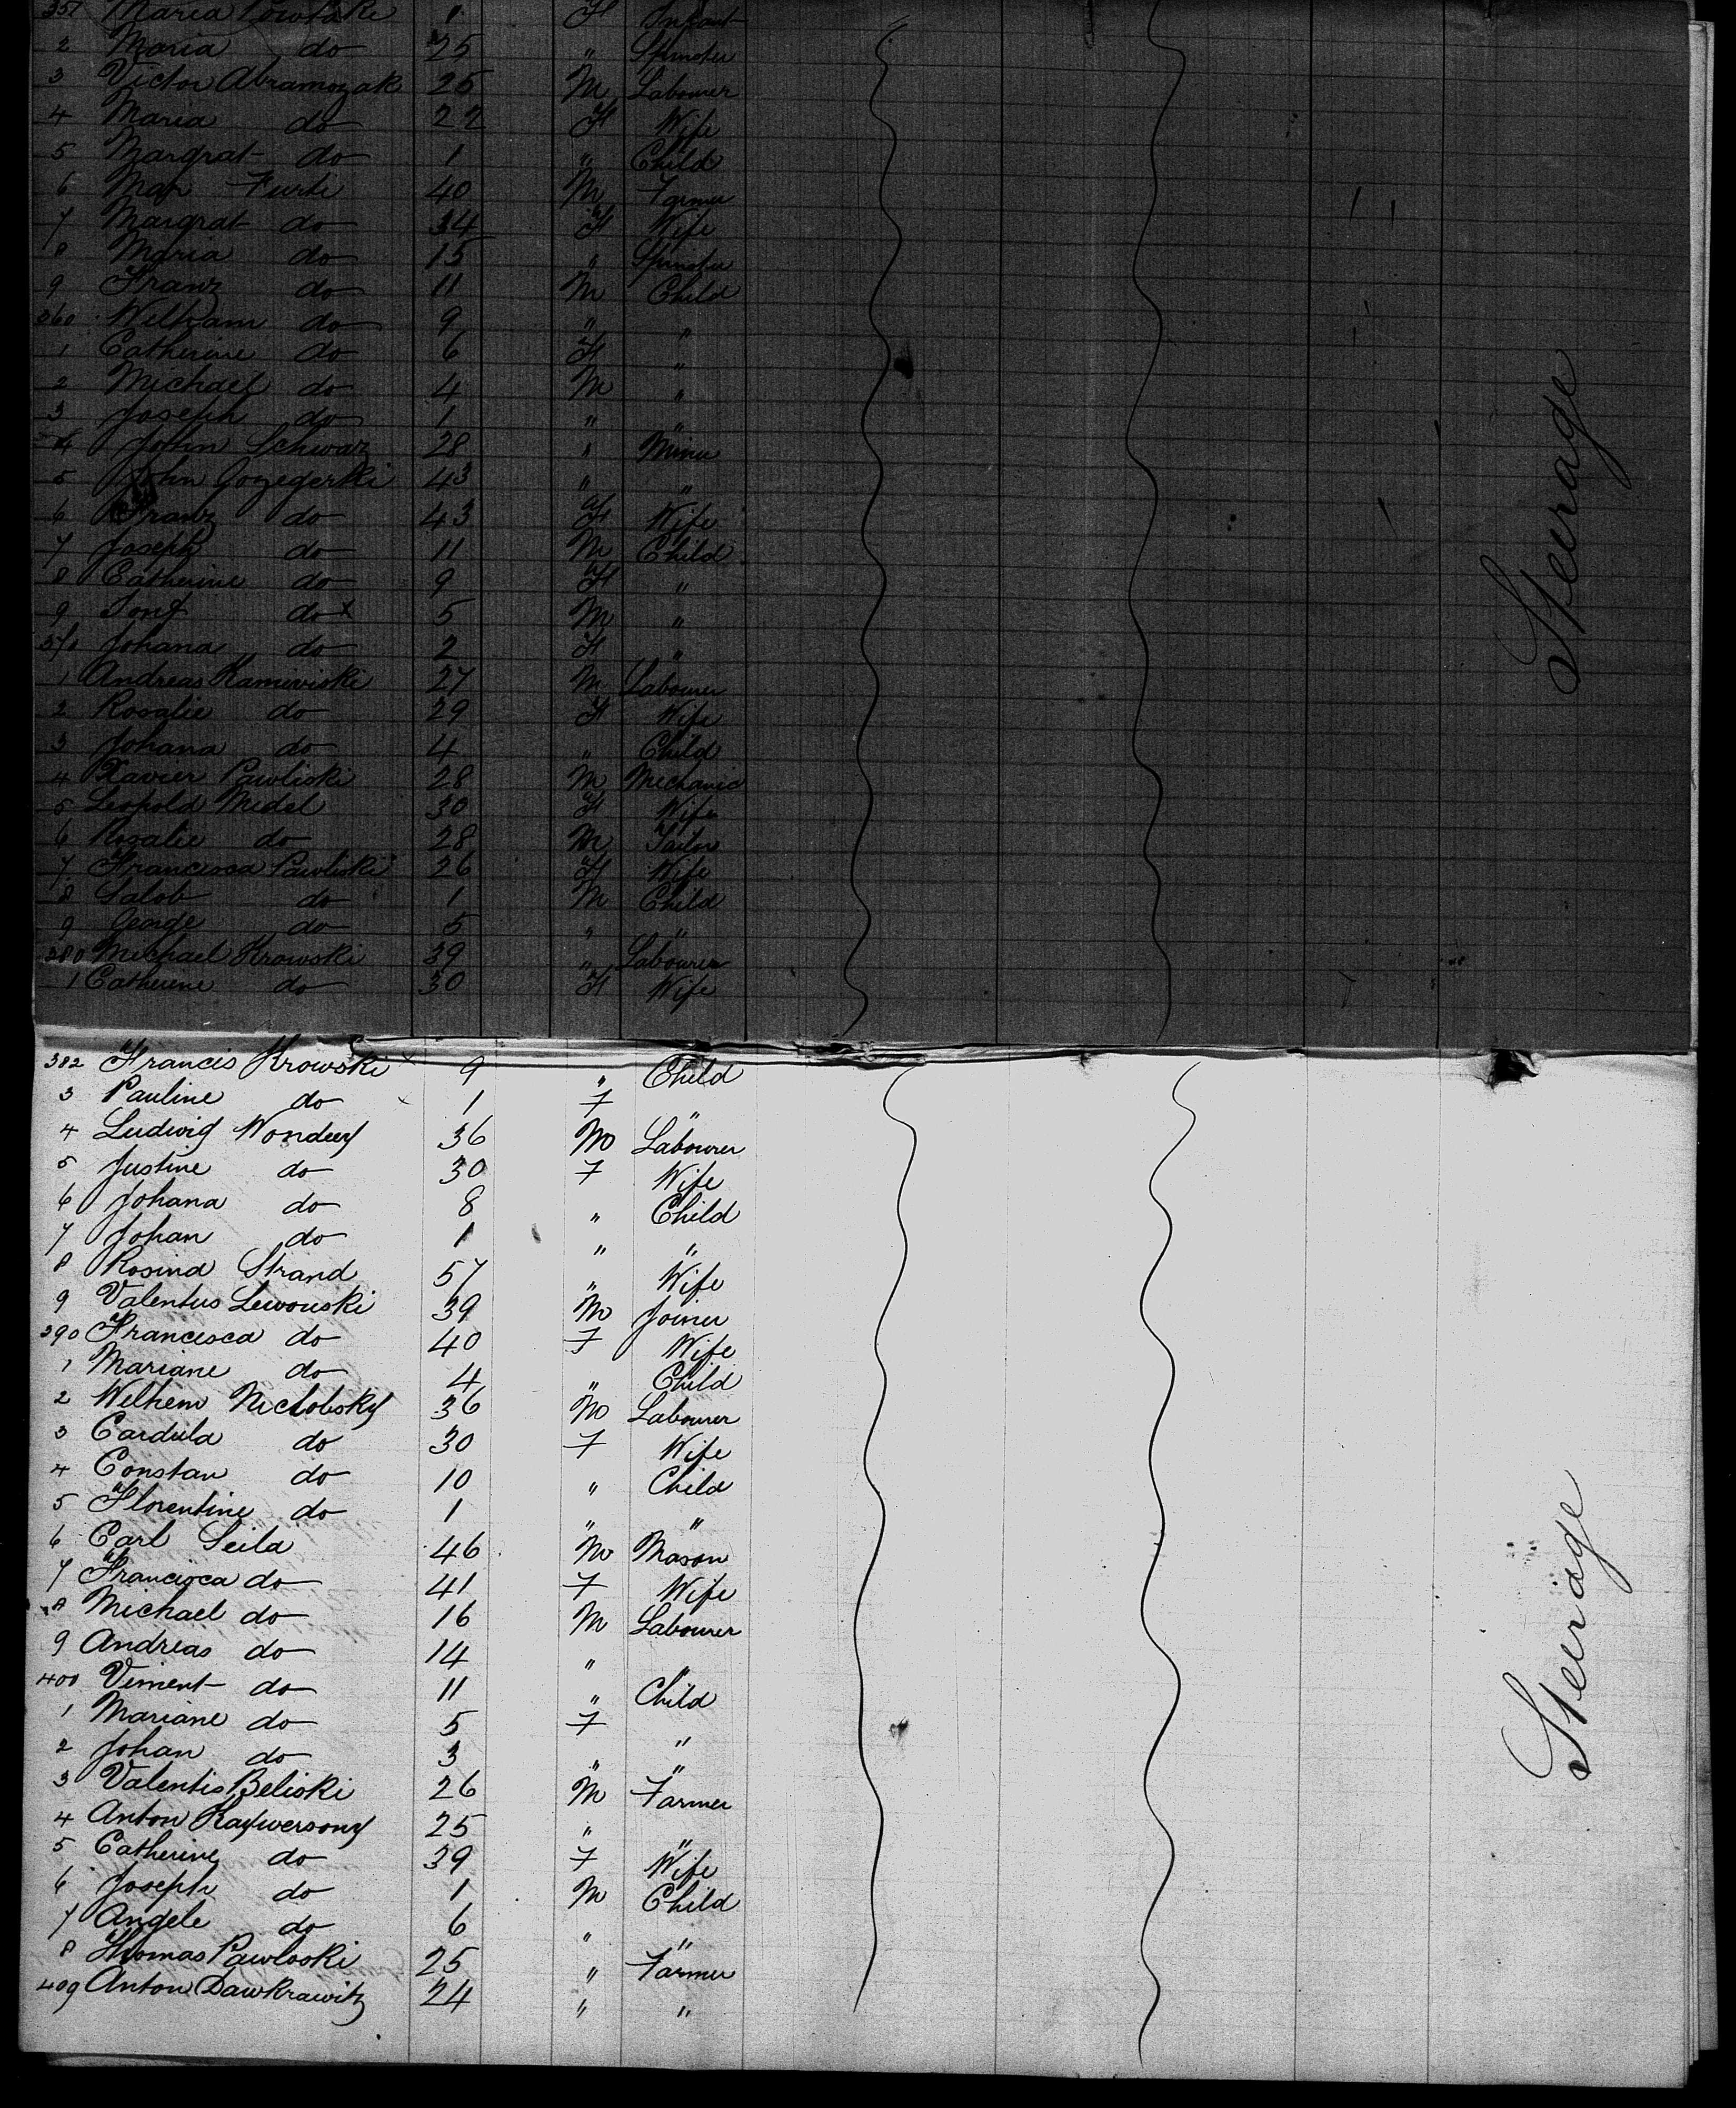 351 Maria Pawlski 11 F Infant
2 Maria do 25 " Spinster
3 Victor Abramozak 25 M Labourer
4 Maria do 22 F Wife
5 Margrat do 1 " Child
6 Man Furti 40 M Farmer
7 Margrat do 34 F Wife
8 Maria do 15 " Spinster
9 Franz do 11 M Child
360 Welham do 9 " "
1 Catherine do 6 F "
2 Michael do 4 M "
3 Joseph do 1 " "
4 John Schwarz 28 " Miner
5 John Gozegerski 43 " "
6 Franz do 43 F Wife
7 Joseph do 11 M Child
8 Catherine do 9 F "
9 do 5 M "
370 Johana do 2 F "
1 Andreas Kamiviski 27 M Labourer
2 Rosalie do 29 F Wife
3 Johana do 4 " Child
4 Xavier Pawliski 28 M Mechanic
5 Leopold Medel 30 F Wife
6 Rosalie do 28 M Tailor
7 Francisca Pawliski 26 F Wife
8 Salob do 1 M Child
9 George do 5 " "
380 Michael Krowski 39 " Labourer
1 Catherine do 30 F Wife
Steerage
382 Francis Krowski 9 " Child
3 Pauline do 1 F "
4 Ludwig Wondery 36 M Labourer
5 Justine do 30 F Wife
6 Johana do 8 " Child
7 Johan do 1 " "
8 Rosina Strand 57 " Wife
9 Valentus Lewouski 39 M Joiner
390 Francesca do 40 F Wife
1 Mariane do 4 " Child
2 Welhem Niclobsky 36 M Labourer
3 Cardula do 30 F Wife
4 Constan do 10 " Child
5 Florentine do 1 " "
6 Carl Seila 46 M Mason
7 Francisca do 41 F Wife
8 Michael do 16 M Labourer
9 Andreas do 14 " "
400 Viment do 11 " Child
1 Mariane do 5 F "
2 Johan do 3 " "
3 Valentis Beliski 26 M Farmer
4 Anton Kaywersony 25 " "
5 Catherine do 39 F Wife
6 Joseph do 1 M Child
7 Angele do 6 " "
8 Thomas Pawloski 25 " Farmer
409 Anton Dawkrawitz 24 " "
Steerage